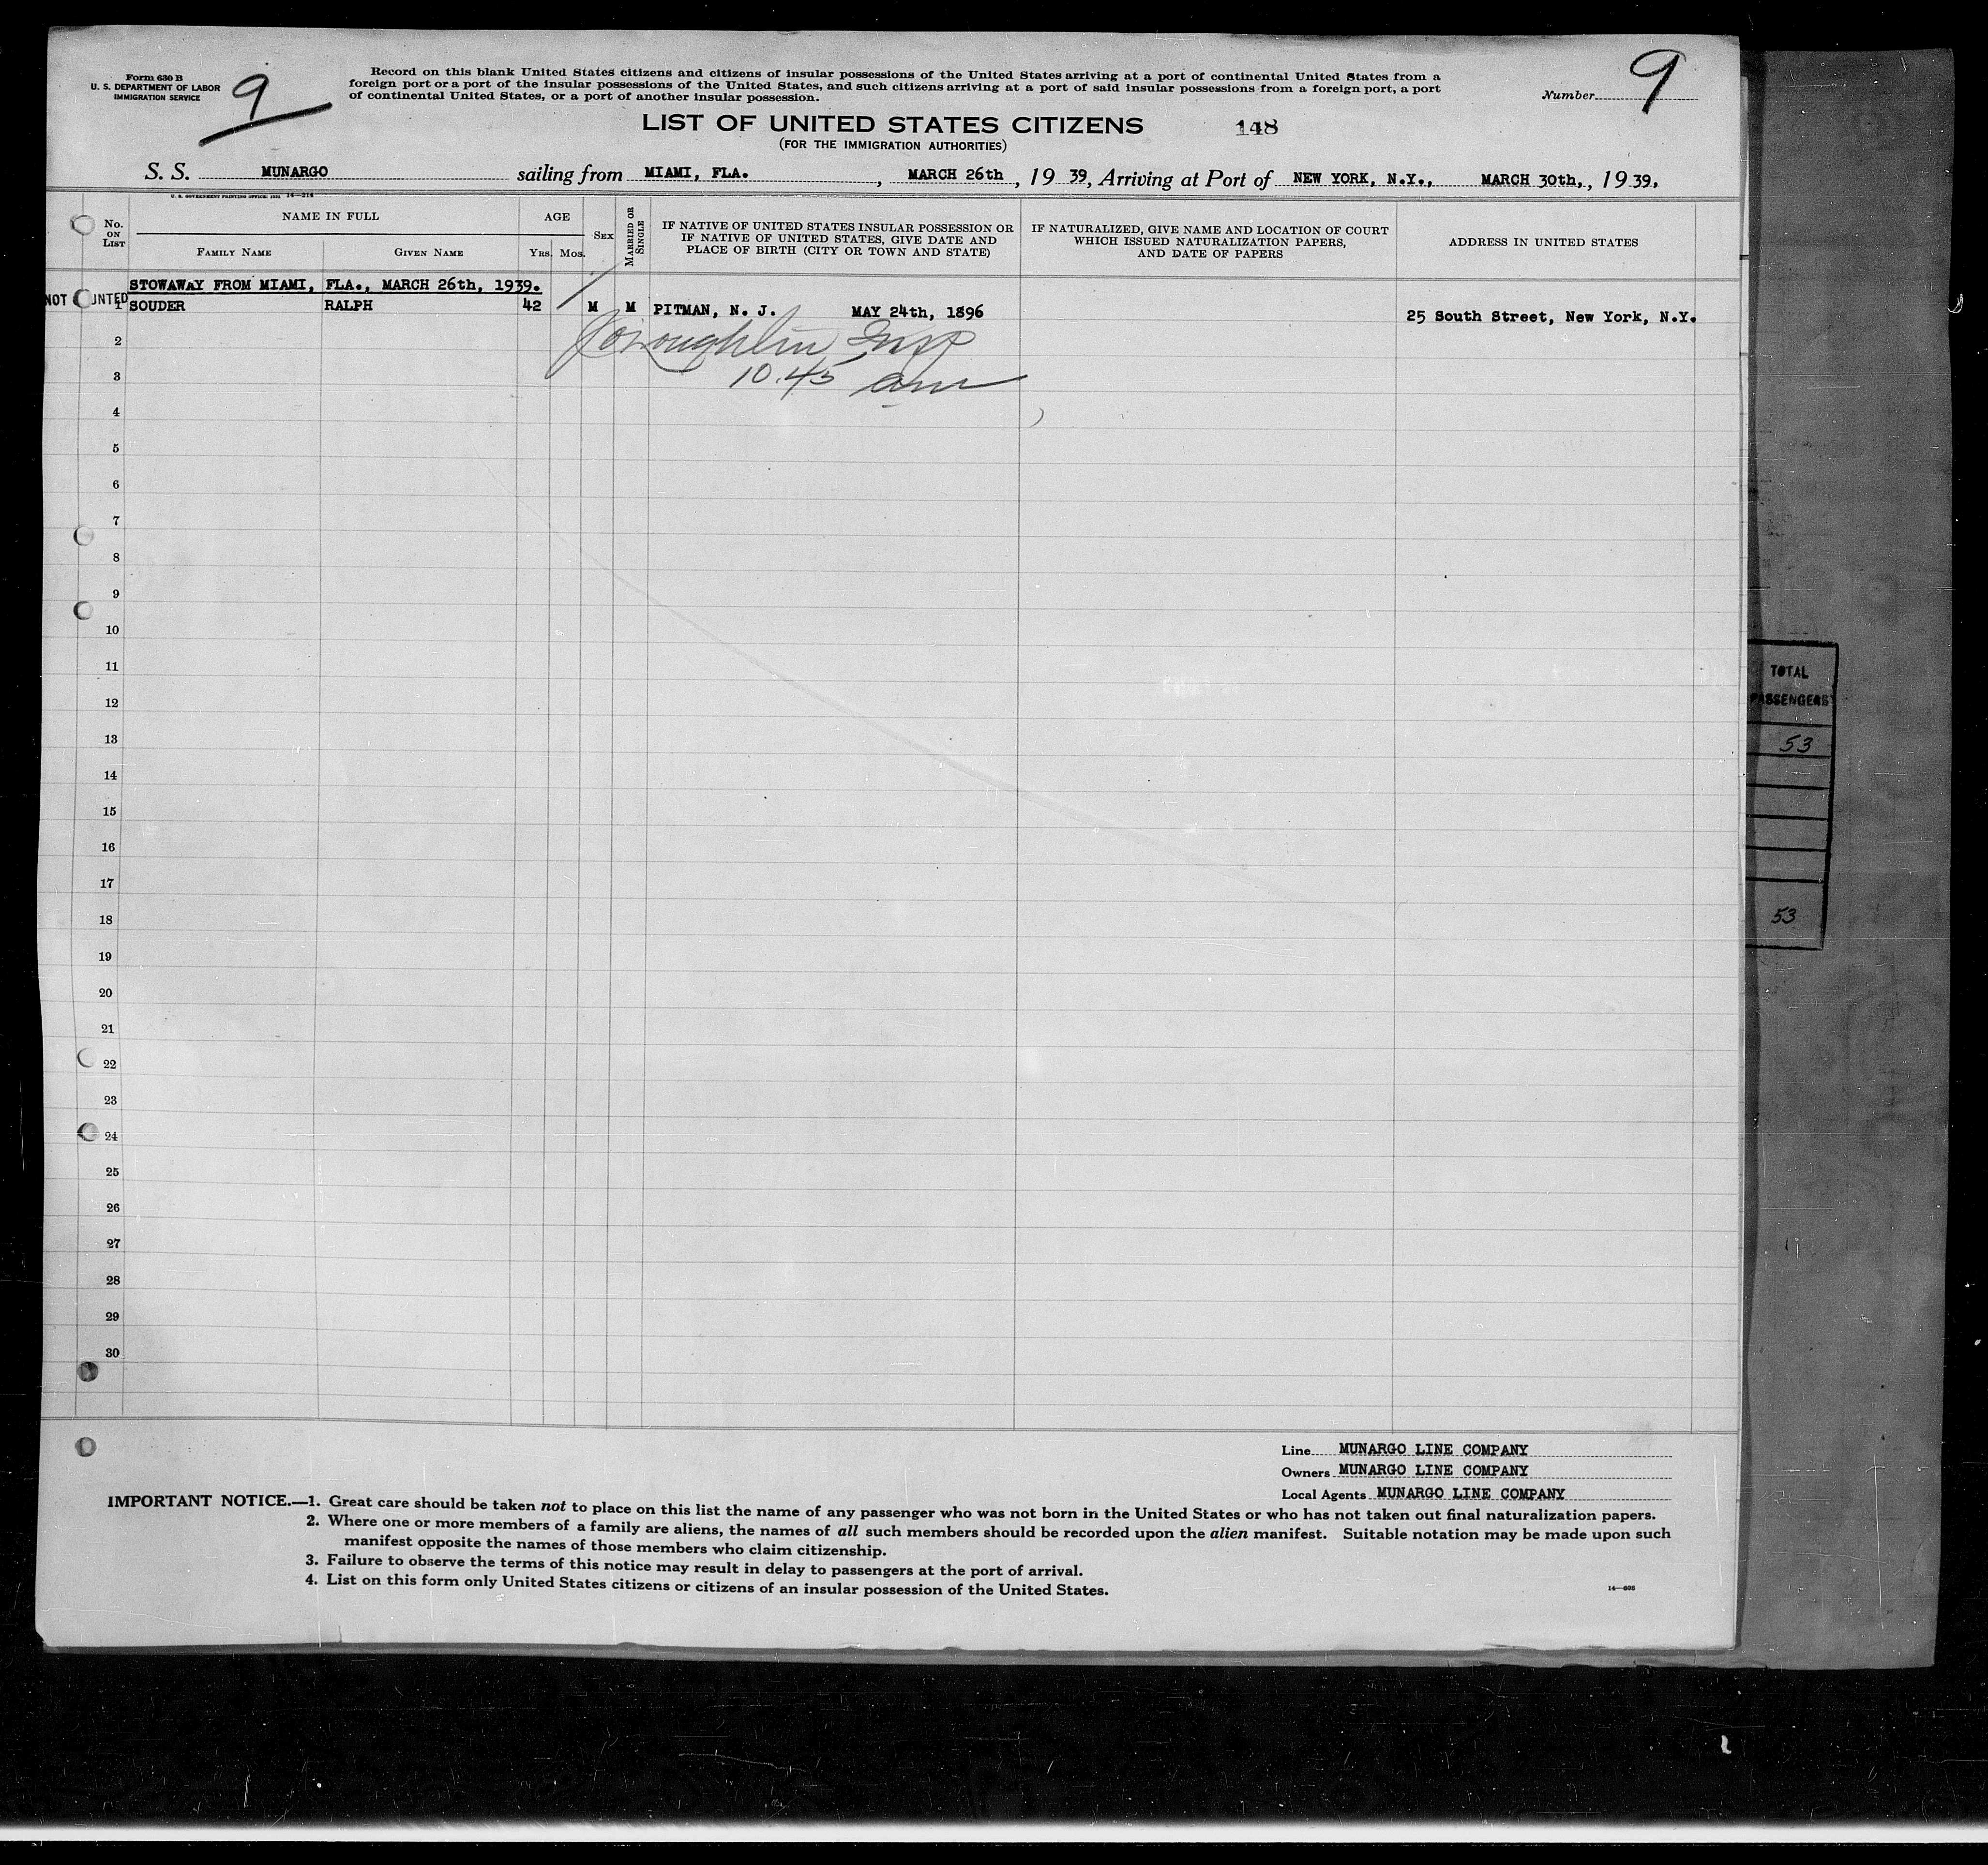 Form 630 B
U. S. DEPARTMENT OF LABOR
IMMIGRATION SERVICE
9
Record on this blank United States citizens and citizens of insular possessions of the United States arriving at a port of continental United States from a
foreign port or a port of the insular possessions of the United States, and such citizens arriving at a port of said insular possessions from a foreign port, a port
of continental United States, or a port of another insular possession.
Number 9
LIST OF UNITED STATES CITIZENS 148
(FOR THE IMMIGRATION AUTHORITIES)
S. S. MUNARGO sailing from MIAMI, FLA. , MARCH 26th , 19 39, Arriving at Port of NEW YORK, N.Y., MARCH 30th, , 19 39,
No. ON LIST
NAME IN FULL
FAMILY NAME GIVEN NAME
AGE
YRS. MOS.
SEX
MARRIED OR SINGLE
IF NATIVE OF UNITED STATES INSULAR POSSESSION OR
IF NATIVE OF UNITED STATES, GIVE DATE AND
PLACE OF BIRTH (CITY OR TOWN AND STATE)
IF NATURALIZED, GIVE NAME AND LOCATION OF COURT
WHICH ISSUED NATURALIZATION PAPERS,
AND DATE OF PAPERS
ADDRESS IN UNITED STATES
STOWAWAY FROM MIAMI, FLA., MARCH 26th, 1939.
NOT
1 SOUDER RALPH 42 M M PITMAN, N. J. MAY 24th, 1896 25 South Street, New York, N.Y.
2
3 10.45 am
4
5
6
7
8
9
10
11
12
13
14
15
16
17
18
19
20
21
22
23
24
25
26
27
28
29
30
TOTAL
PASSENGERS
53
53
Line MUNARGO LINE COMPANY
Owners MUNARGO LINE COMPANY
Local Agents MUNARGO LINE COMPANY
IMPORTANT NOTICE.—1. Great care should be taken not to place on this list the name of any passenger who was not born in the United States or who has not taken out final naturalization papers.
2. Where one or more members of a family are aliens, the names of all such members should be recorded upon the alien manifest. Suitable notation may be made upon such
manifest opposite the names of those members who claim citizenship.
3. Failure to observe the terms of this notice may result in delay to passengers at the port of arrival.
4. List on this form only United States citizens or citizens of an insular possession of the United States.